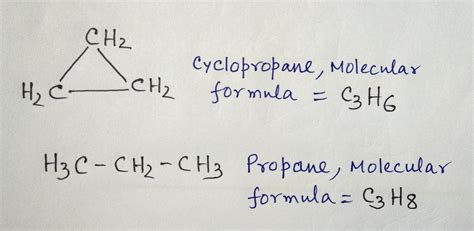 CH2
H2C CH2
Cyclopropane, Molecular
formula = C3H6
H3C-CH2-CH3
Propane, Molecular
formula = C3H8